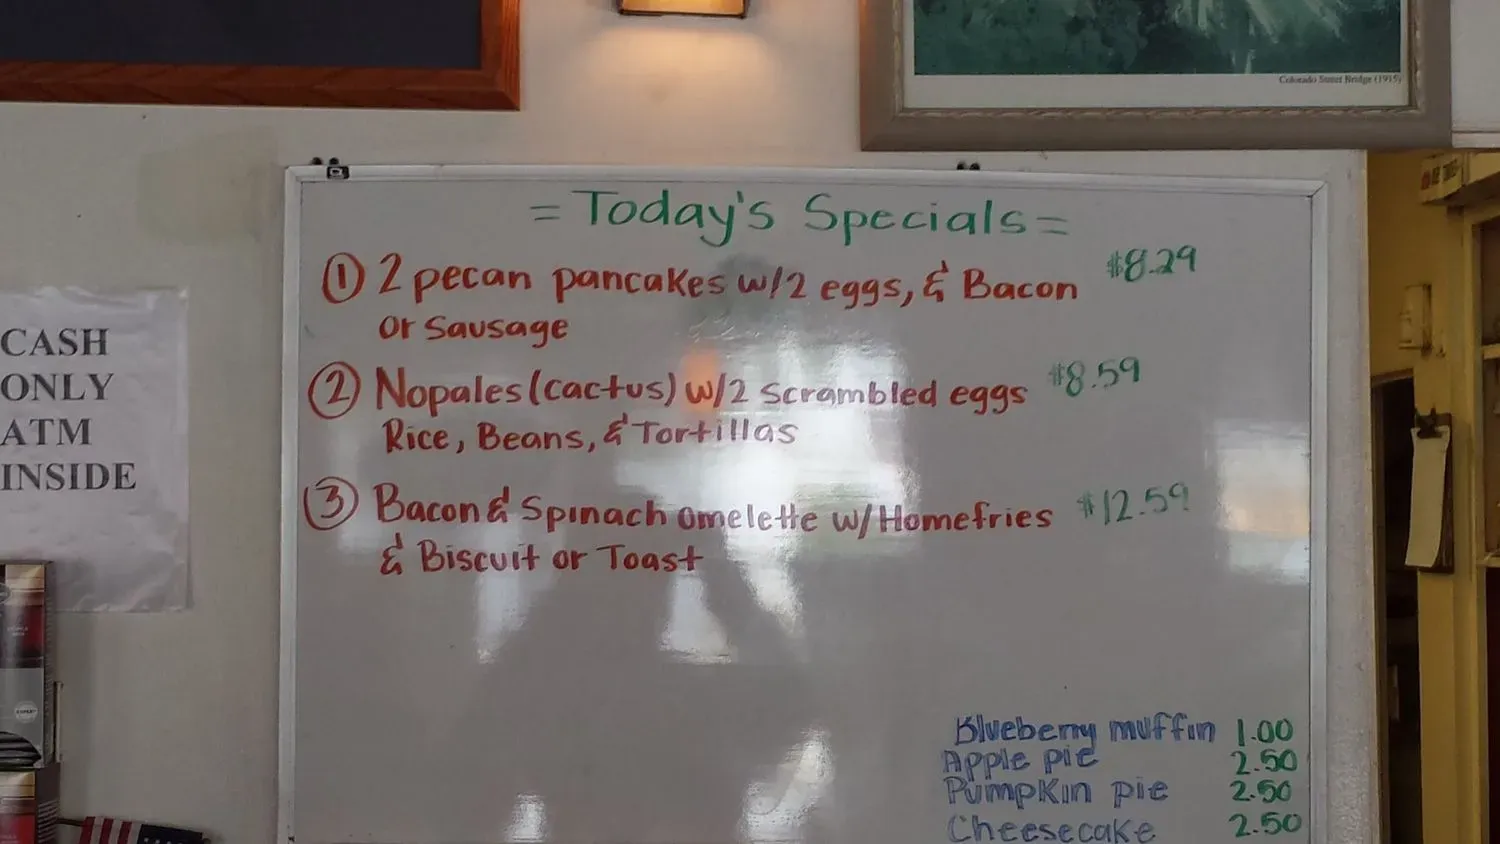 Colorado Street Bridge (1915)
= Today's Specials =
① 2 pecan pancakes w/2 eggs, & Bacon $8.29
or Sausage
② Nopales (cactus) w/2 scrambled eggs $8.59
Rice, Beans, & Tortillas
③ Bacon & Spinach omelette w/ Homefries $12.59
& Biscuit or Toast
CASH
ONLY
ATM
INSIDE
Blueberry muffin 1.00
Apple pie 2.50
Pumpkin pie 2.50
Cheesecake 2.50